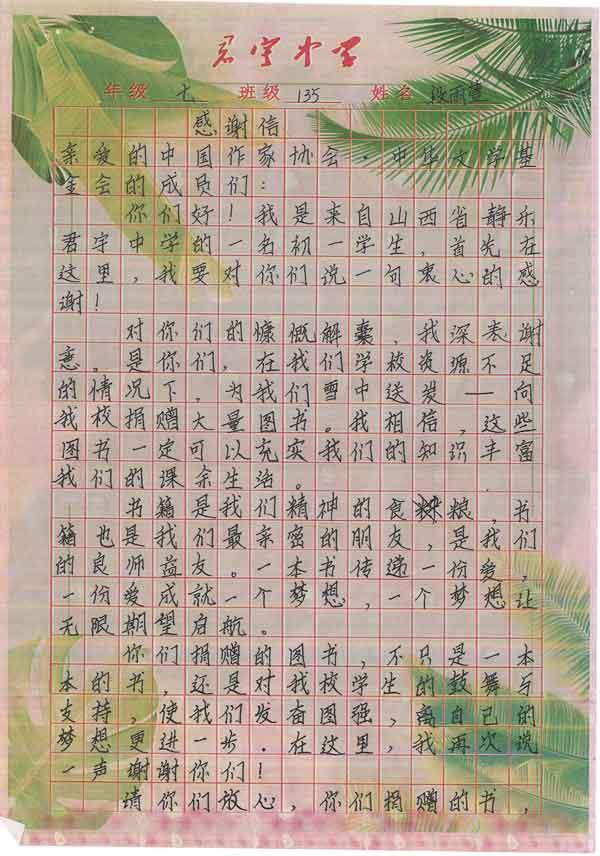 君宇中学
年级 七 班级 135 姓名 段雨萱
感谢信
亲爱的中国作家协会·中华文学基
金会的成员们：
你们好！我是来自山西省静乐
君宇中学的一名初一学生，首先在
这里，我要对你们说一句衷心的感
谢！
对你们的慷慨解囊，我深表谢
意。是你们，在我们学校资源不足
的情况下，为我们雪中送炭——向
我校捐赠大量图书。我相信，这些
图书一定可以充实我们的知识丰富
我们的课余生活。
书籍是我们精神的食粮，书
籍也是我们最亲密的朋友，是我们
的良师益友。一本书传递一份爱，
一份爱成就一个梦想，一个梦想让
无限期望启航。
你们捐赠的图书，不只是一本
本的书，还是对我校学生的鼓舞与
支持，使我们发奋图强，离自己的
梦想更进一步.在这里，我再次说
一声谢谢你们！
请你们放心，你们捐赠的书，